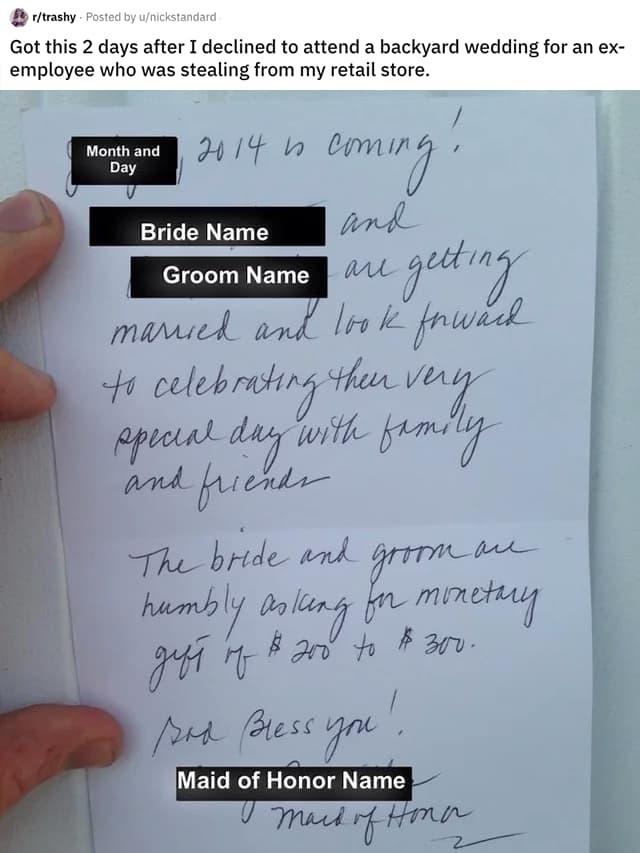 r/trashy · Posted by u/nickstandard
Got this 2 days after I declined to attend a backyard wedding for an ex-
employee who was stealing from my retail store.
Month and
Day
, 2014 is coming!
Bride Name and
Groom Name are getting
married and look forward
to celebrating their very
special day with family
and friends
The bride and groom are
humbly asking for monetary
gift of $200 to $300.
God Bless you!
Maid of Honor Name
Maid of Honor